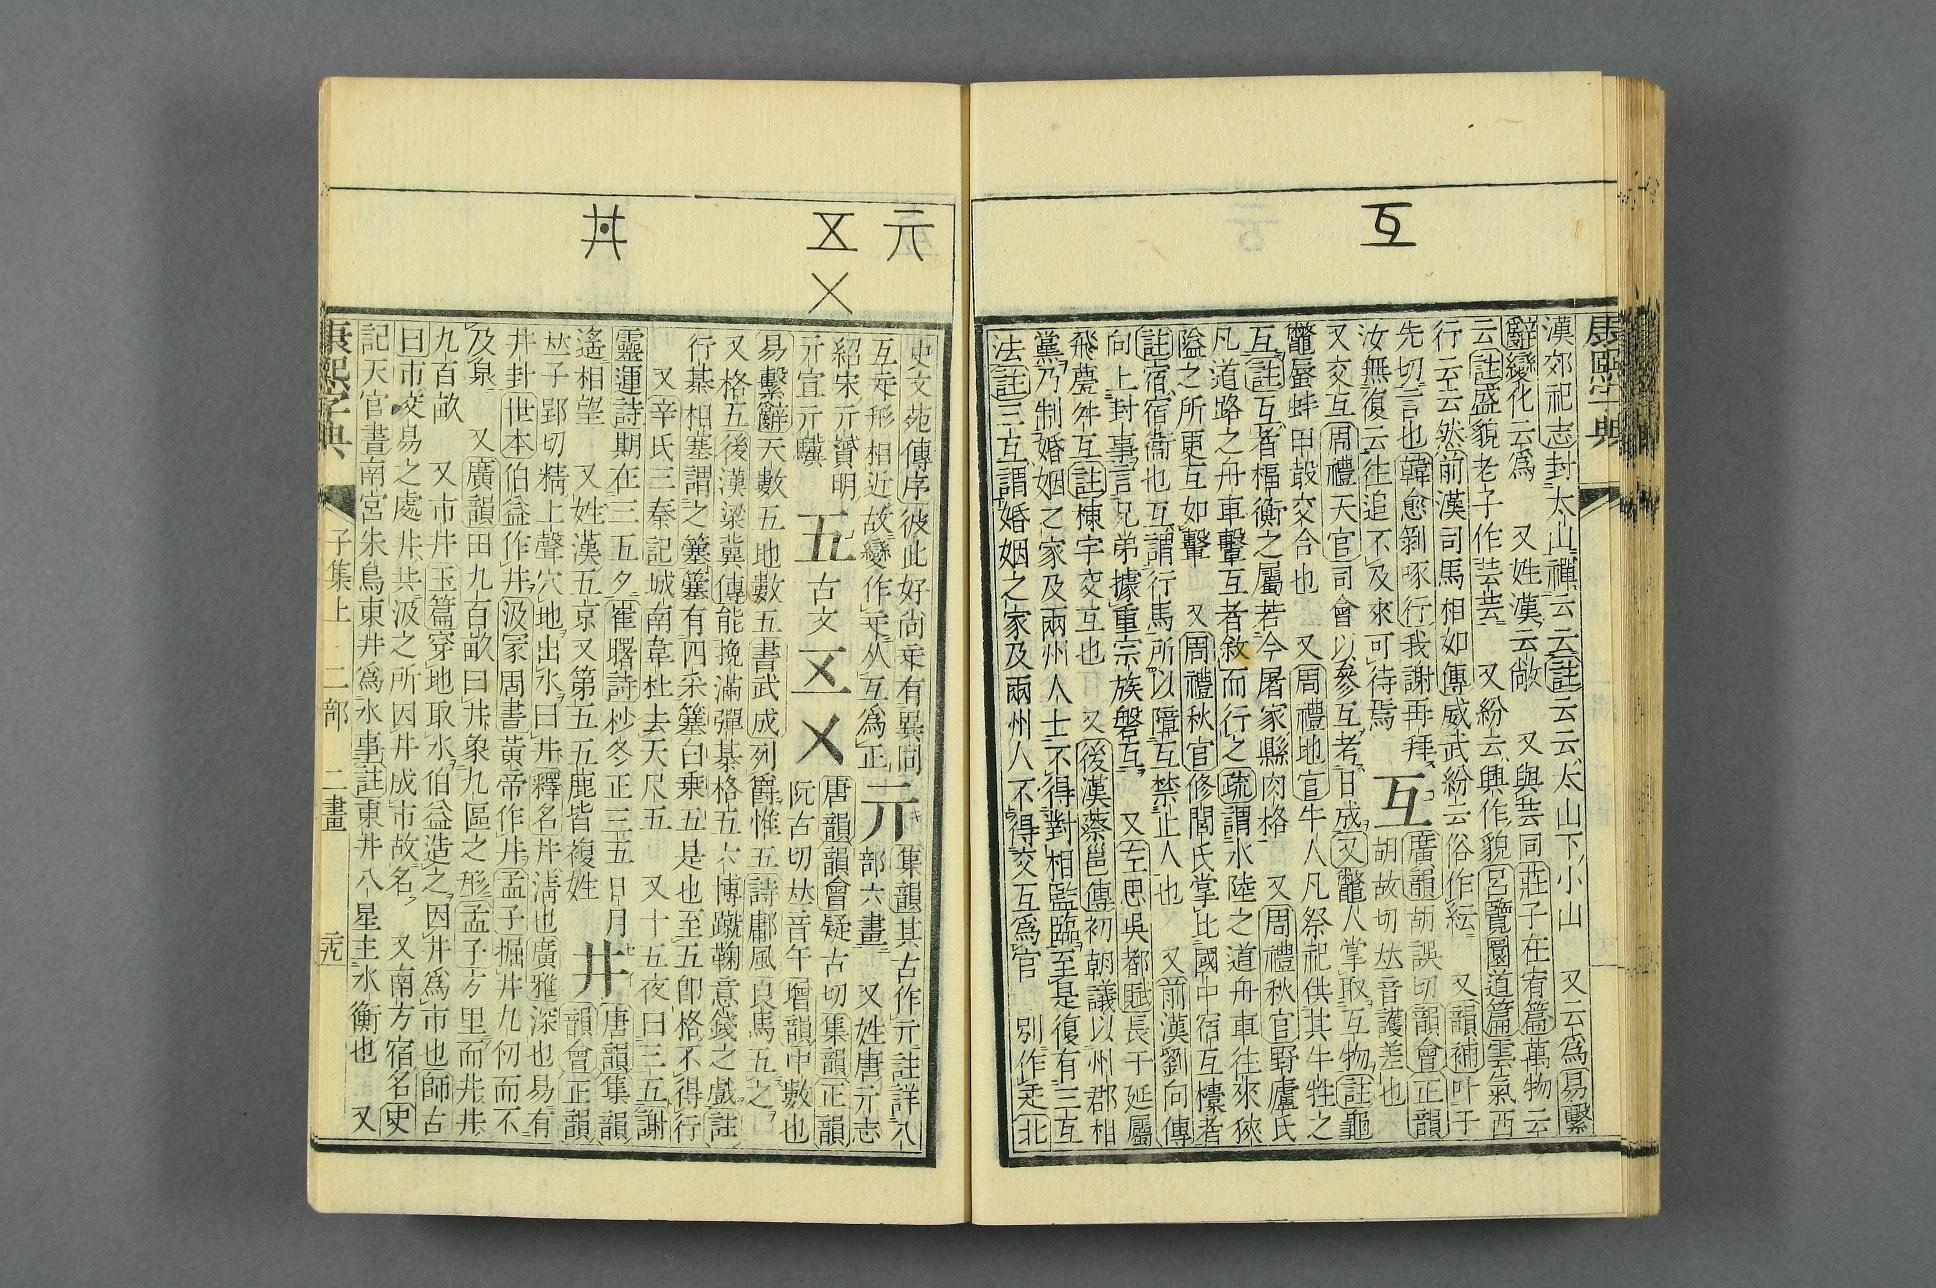 互
康熙字典
漢郊祀志封太山禪云云註云云太山下小山　又云爲易繫
辭變化云爲　又姓漢云敞　又與芸同莊子在宥篇萬物云
云註盛貌老子作芸芸　又紛云興作貌呂覽圜道篇雲氣西
行云云然前漢司馬相如傳威武紛云俗作紜　又韻補叶于
先切言也韓愈剝啄行我謝再拜
汝無復云往追不及來可待焉　互　廣韻胡誤切韻會正韻
胡故切𠀤音護差也
又交互周禮天官司會以參互考日成又鼈人掌取互物註龜
鼈蜃蚌甲殼交合也　又周禮地官牛人凡祭祀供其牛牲之
互註互者楅衡之屬若今屠家縣肉格　又周禮秋官野廬氏
凡道路之舟車轚互者敘而行之疏謂水陸之道舟車往來狹
隘之所更互如轚　又周禮秋官修閭氏掌比國中宿互㯓者
註宿宿衞也互謂行馬所以障互禁止人也　又前漢劉向傳
向上封事言兄弟據重宗族磐互　又左思吳都賦長干延屬
飛甍舛互註棟宇交互也　又後漢蔡邕傳初朝議以州郡相
黨乃制婚姻之家及兩州人士不得對相監臨至是復有三互
法註三互謂婚姻之家及兩州人不得交互爲官　別作𠄔北
元
㐅
史文苑傳序彼此好尚𠄔有異同
互𠄔形相近故變作𠄔从互爲正　亓　集韻其古作亓註詳八
部六畫　又姓唐亓志
紹宋亓贇明
亓宣亓驥　五　古文㐅　唐韻韻會疑古切集韻正韻
阮古切𠀤音午增韻中數也
易繫辭天數五地數五書武成列爵惟五詩鄘風良馬五之
又格五後漢梁冀傳能挽滿彈棊格五六博蹴鞠意錢之戲註
行棊相塞謂之簺簺有四采簺白乗五是也至五卽格不得行
又辛氏三秦記城南韋杜去天尺五　又十五夜曰三五謝
靈運詩期在三五夕崔曙詩杪冬正三五日月
遙相望　又姓漢五京又第五五鹿皆複姓　井　唐韻集韻
韻會正韻
𠀤子郢切精上聲穴地出水曰井釋名井淸也廣雅深也易有
井卦世本伯益作井汲冢周書黃帝作井孟子掘井九仞而不
及泉　又廣韻田九百畝曰井象九區之形孟子方里而井井
九百畝　又市井玉篇穿地取水伯益造之因井爲市也師古
曰市交易之處井共汲之所因井成市故名　又南方宿名史
記天官書南宮朱鳥東井爲水事註東井八星主水衡也　又
康熙字典　子集上　二部　二畫